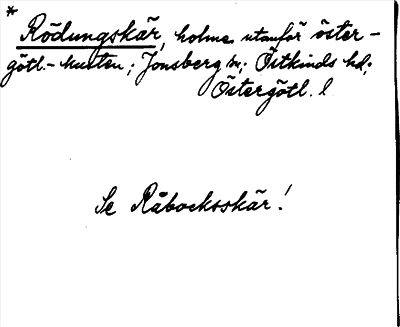 * Rödungskär, holme utanför öster-
götl.-kusten; Jonsberg sn; Östkinds hd;
Östergötl. l
Se Råbocksskär!